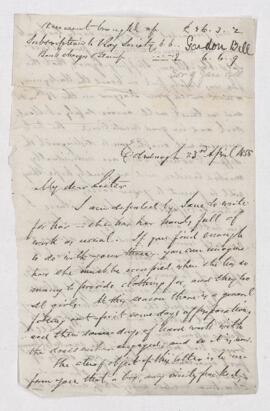 Amount brought up £36. 3. 2
Subscription to Ray Society 6 6
Gordon Bell
Edinburgh 23rd April 1855
My dear Sister
I am deputed by Jane to write
for her – she has her hands full of
work as usual. If you find enough
to do with your three, you can imagine
how she must be occupied, when she has so
many to provide clothing for, and they too
all girls. At this season there is a general
out some days of preparation,
and then some days of hard work with
the engaged, and so it is now.
The chief object of this letter is to in-
form you that a box, very nicely packed,